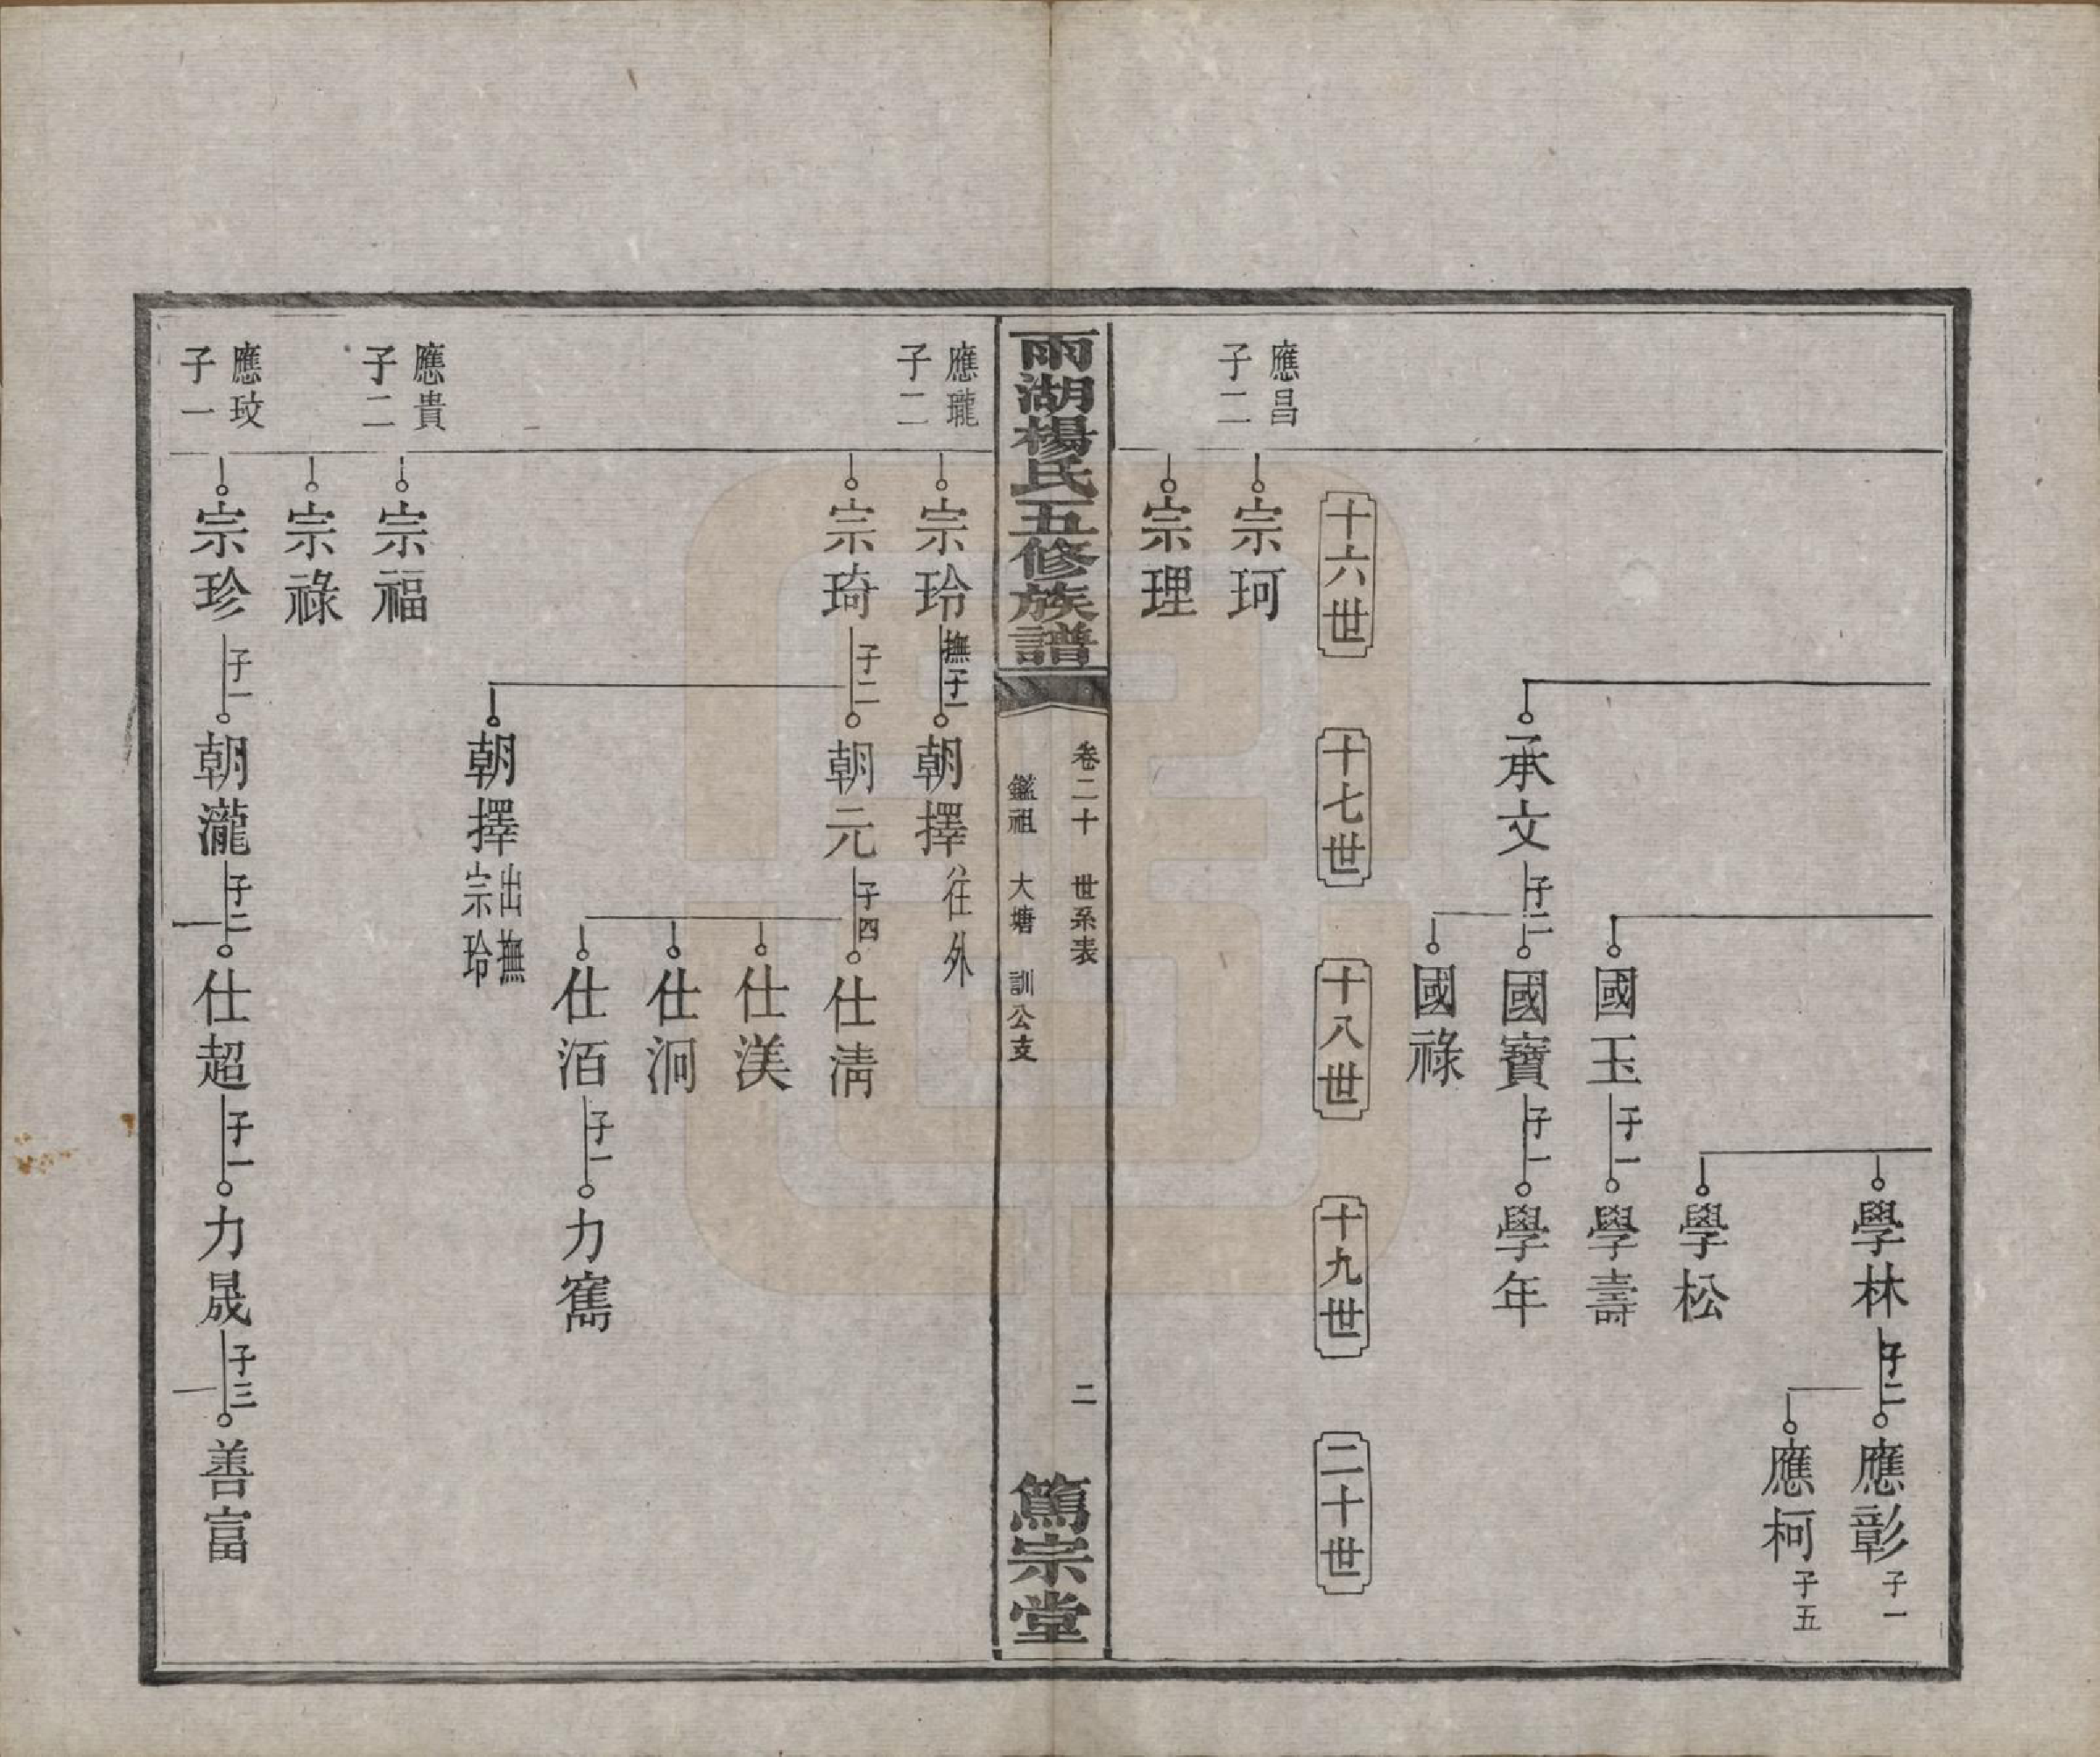 學林 子二 應彰 子一
應柯 子五
學松
國玉 子一 學壽
承文 子二 國寶 子一 學年
國祿
十六世 十七世 十八世 十九世 二十世
應昌 子二
宗珂
宗理
雨湖楊氏五修族譜
卷二十 世系表 二
鑑祖 大塘 訓公支
篤宗堂
應瓏 子二
宗玲 撫子一 朝擇 往外
宗琦 子二 朝元 子四 仕淸
仕渼
仕泂
仕洦 子一 力寯
朝擇 出撫宗玲
應貴 子二
宗福
宗祿
應玟 子一
宗珍 子一 朝瀧 子二 仕超 子一 力晟 子三 善富